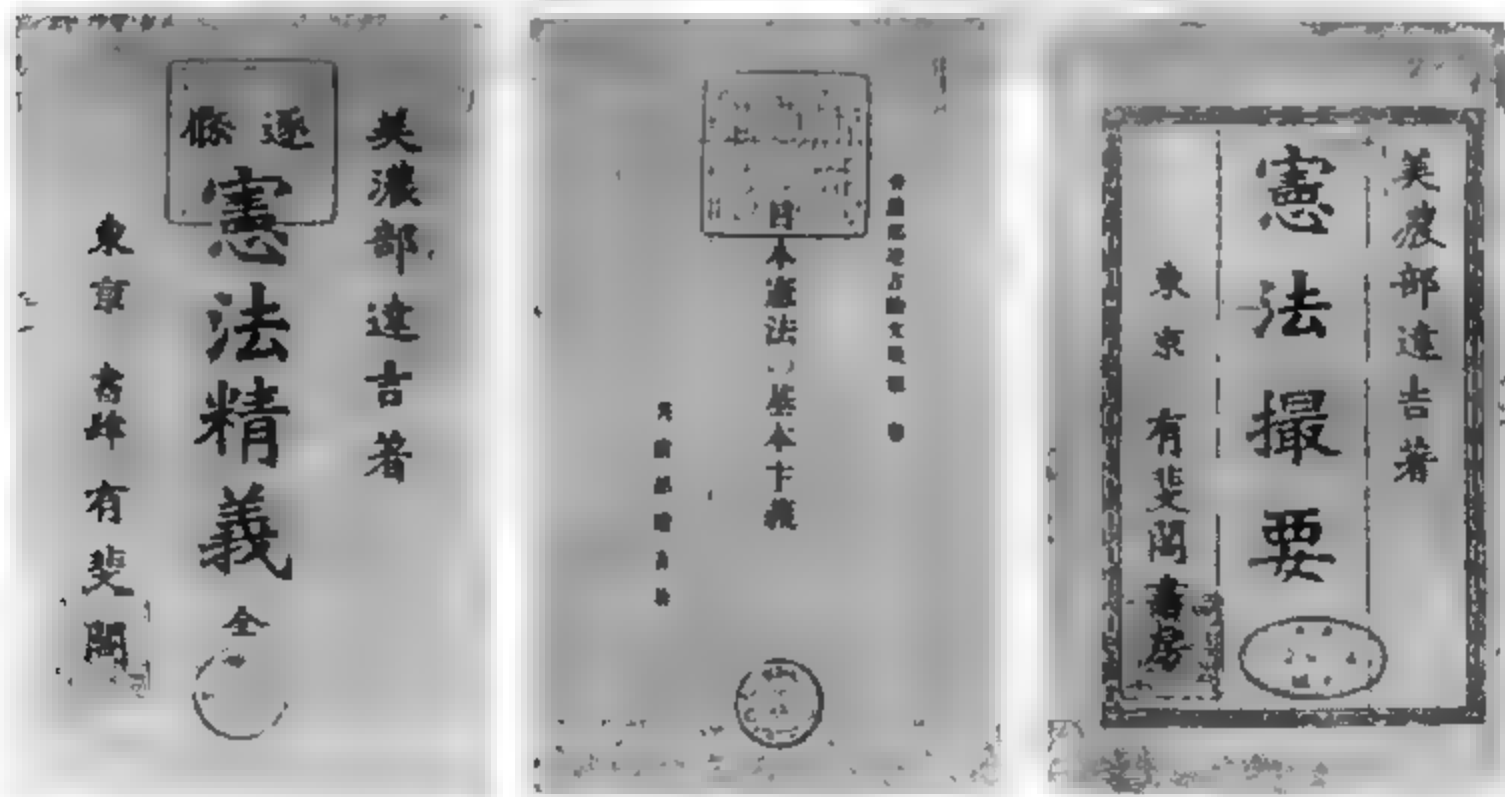 美濃部達吉著
逐條
憲法精義
全
東京 書肆 有斐閣
日本憲法の基本主義
美濃部達吉著
憲法撮要
東京 有斐閣書房